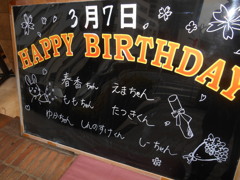 3月7日
HAPPY BIRTHDAY
春香ちゃん えまちゃん
ももちゃん たつきくん
ゆかちゃん しんのすけくん しーちゃん